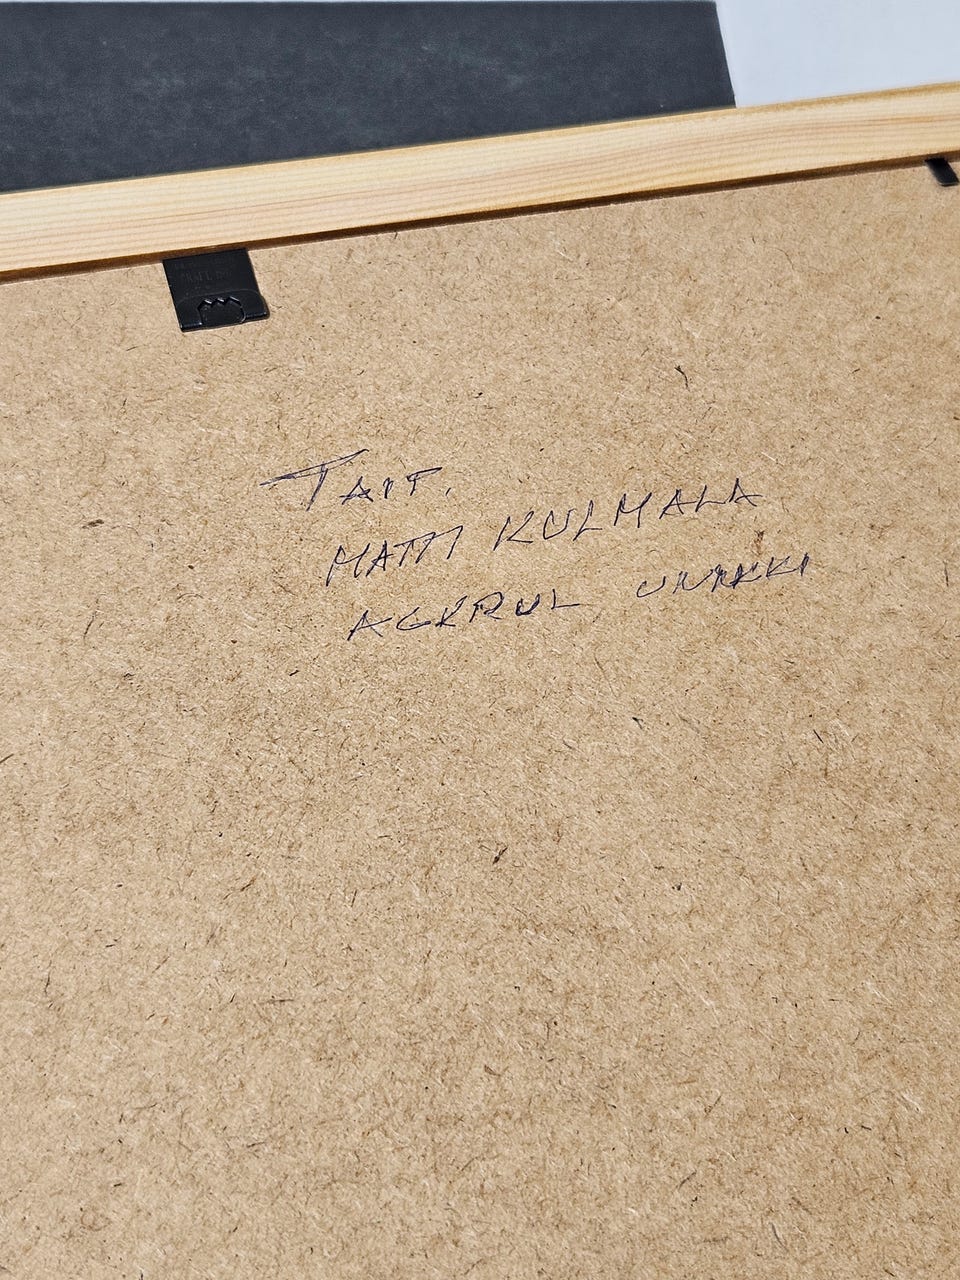 TAIT.
MATTI KULMALA
AGKRUL UNIKKI